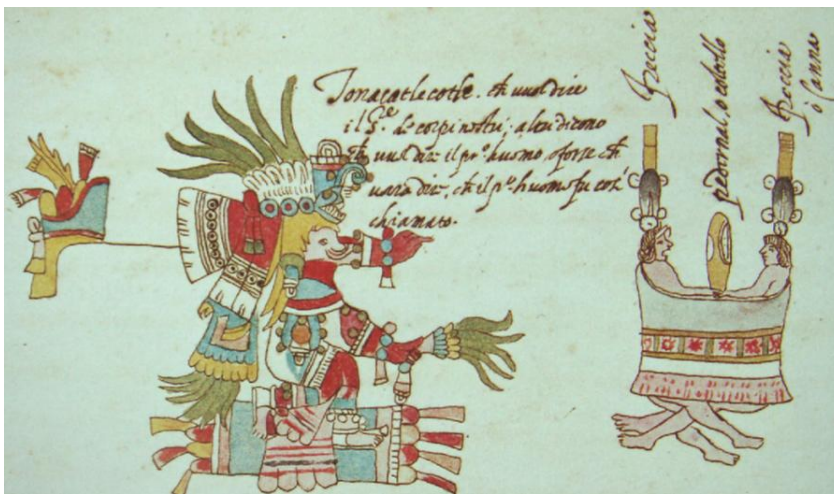 Tonacatlecotle. ch vuol dire
il S.e de corpi nostri; altri dicono
ch vuol dir il pr.o huomo, o forse ch
uara dir, ch il p.o huomo fu cosi
chiamato.
freccia
pedernal, o coltello
freccia
ò canna